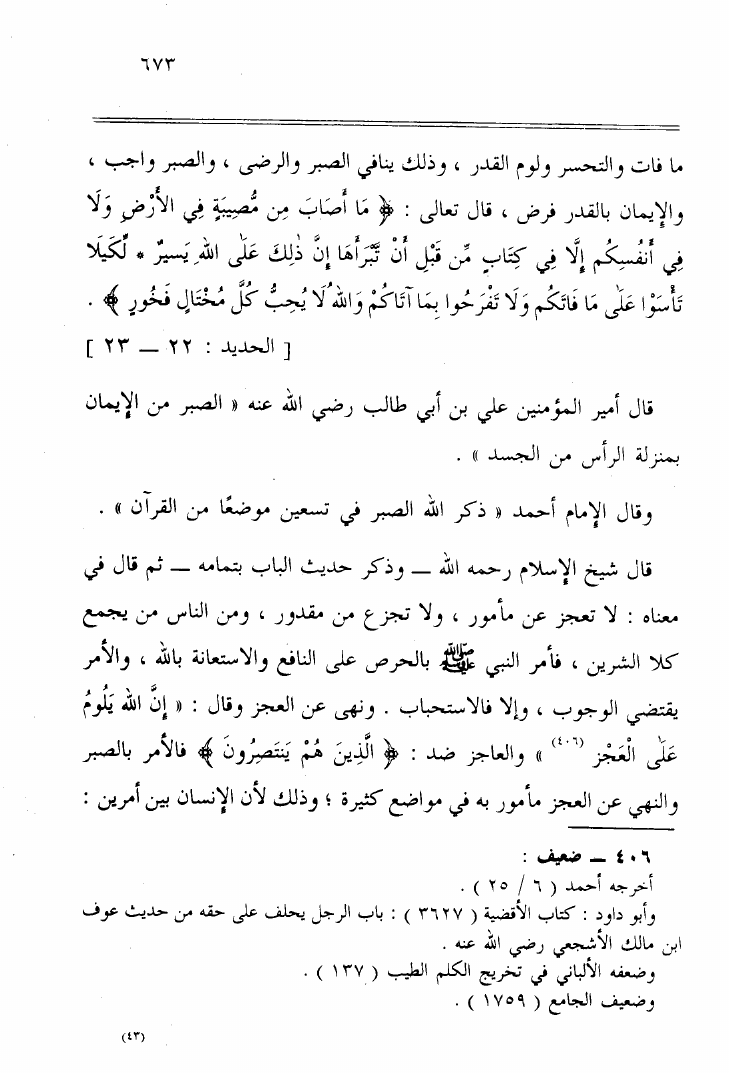 ٦٧٣
ما فات والتحسر ولوم القدر ، وذلك ينافي الصبر والرضى ، والصبر واجب ،
والإيمان بالقدر فرض ، قال تعالى : ﴿ مَا أَصَابَ مِن مُّصِيبَةٍ فِي الأَرْضِ وَلَا
فِي أَنفُسِكُم إِلَّا فِي كِتَابٍ مِّن قَبْلِ أَنْ نَّبْرَأَهَا إِنَّ ذٰلِكَ عَلَى اللهِ يَسيرٌ * لِّكَيلَا
تَأْسَوْا عَلَى مَا فَاتَكُم وَلَا تَفْرَحُوا بِمَا آتَاكُمْ وَاللهُ لَا يُحِبُّ كُلَّ مُخْتَالٍ فَخُورٍ ﴾ .
[ الحديد : ٢٢ ــ ٢٣ ]
قال أمير المؤمنين علي بن أبي طالب رضي الله عنه « الصبر من الإيمان
بمنزلة الرأس من الجسد » .
وقال الإمام أحمد « ذكر الله الصبر في تسعين موضعًا من القرآن » .
قال شيخ الإسلام رحمه الله ــ وذكر حديث الباب بتمامه ــ ثم قال في
معناه : لا تعجز عن مأمور ، ولا تجزع من مقدور ، ومن الناس من يجمع
كلا الشرين ، فأمر النبي ﷺ بالحرص على النافع والاستعانة بالله ، والأمر
يقتضي الوجوب ، وإلا فالاستحباب . ونهى عن العجز وقال : « إِنَّ الله يَلُومُ
عَلَى الْعَجْزِ (٤٠٦) » والعاجز ضد : ﴿ الَّذِينَ هُمْ يَنتَصِرُونَ ﴾ فالأمر بالصبر
والنهي عن العجز مأمور به في مواضع كثيرة ؛ وذلك لأن الإنسان بين أمرين :
٤٠٦ ــ ضعيف :
أخرجه أحمد ( ٦ / ٢٥ ) .
وأبو داود : كتاب الأقضية ( ٣٦٢٧ ) : باب الرجل يحلف على حقه من حديث عوف
ابن مالك الأشجعي رضي الله عنه .
وضعفه الألباني في تخريج الكلم الطيب ( ١٣٧ ) .
وضعيف الجامع ( ١٧٥٩ ) .
(٤٣)